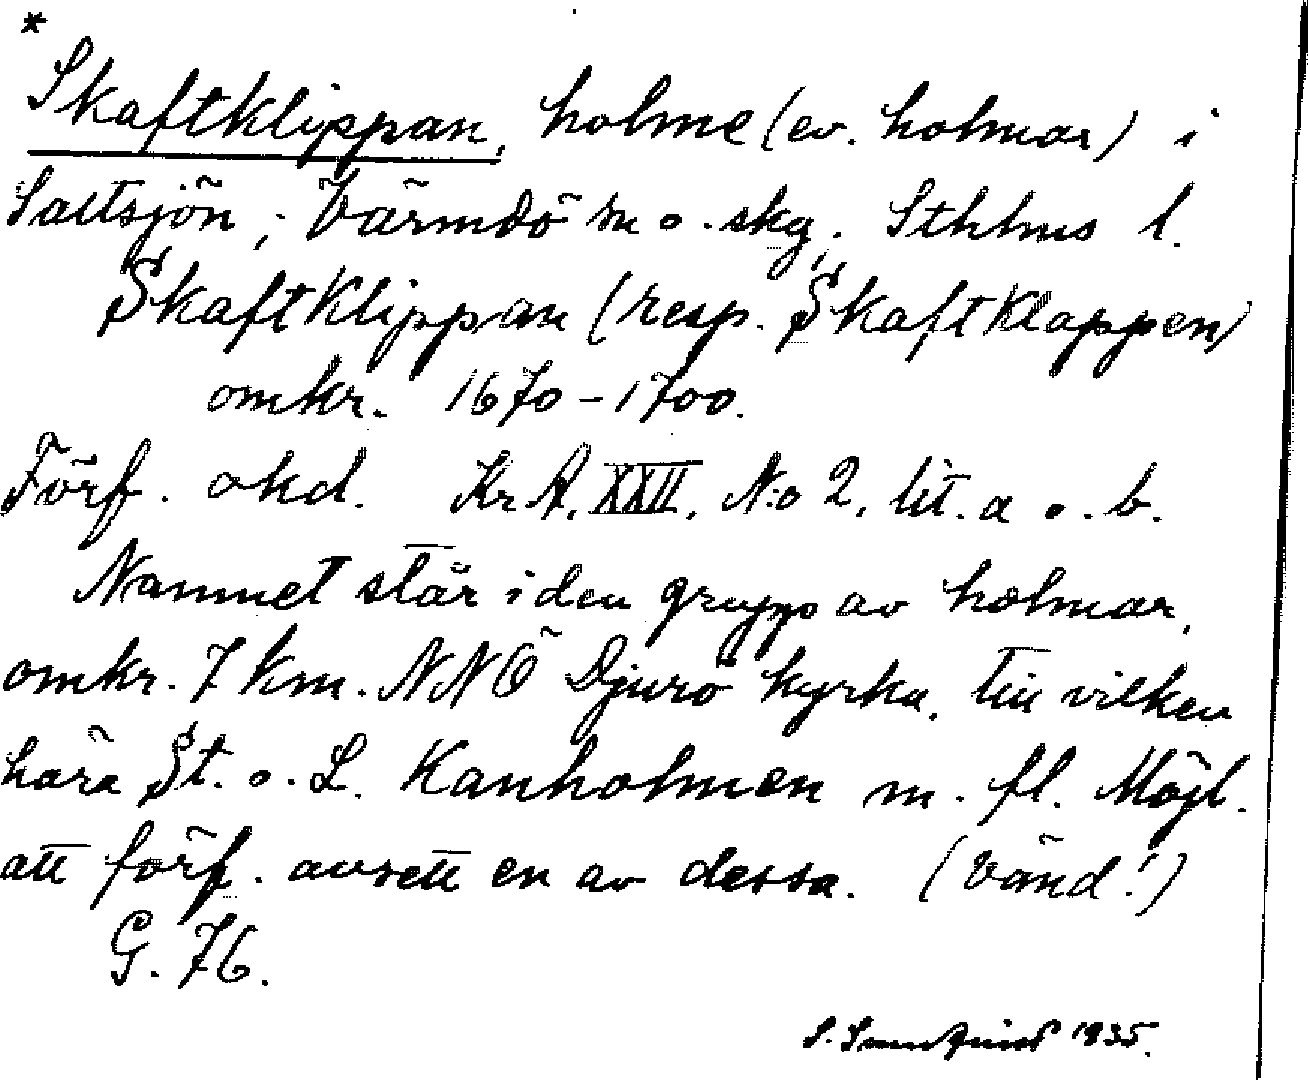 *
Skaftklippan, holme (ev. holmar) i
Saltsjön; Värmdö sn o. skg, Sthlms l.
Skaftklippan (resp. Skaftklappen)
omkr. 1670-1700.
Förf. okd. Kr A. XXII. N:o 2, lit. a o. b.
Namnet står i den grupp av holmar,
omkr. 7 km. NNÖ Djurö kyrka, till vilken
höra St. o. L. Kanholmen m. fl. Möjl.
att förf. avsett en av dessa. (Vänd!)
G. 76.
S. 1935.